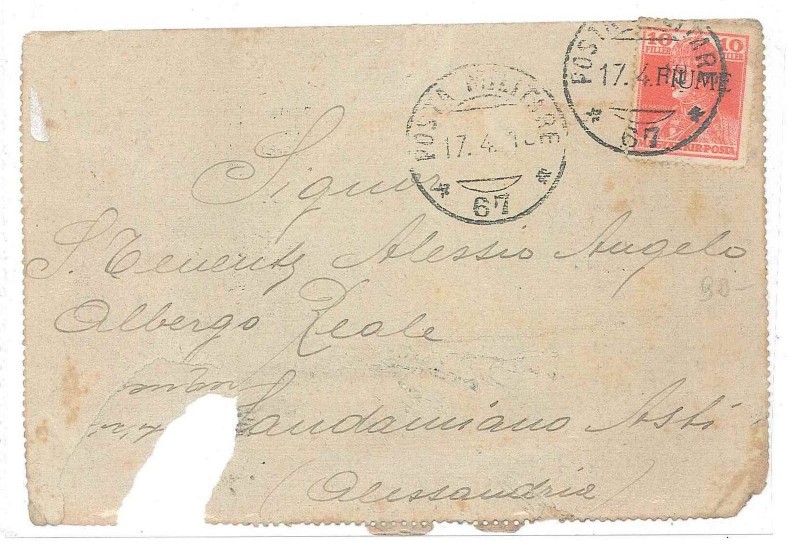 10 10
FILLER FILLER
FIUME
MAGYAR KIR. POSTA
POSTA MILITARE
17. 4. 19
67
POSTA MILITARE
17. 4. 19
67
Signor
S. Tenente Alessio Angelo
Albergo Reale
Sandamiano Asti
(Alessandria)
90-